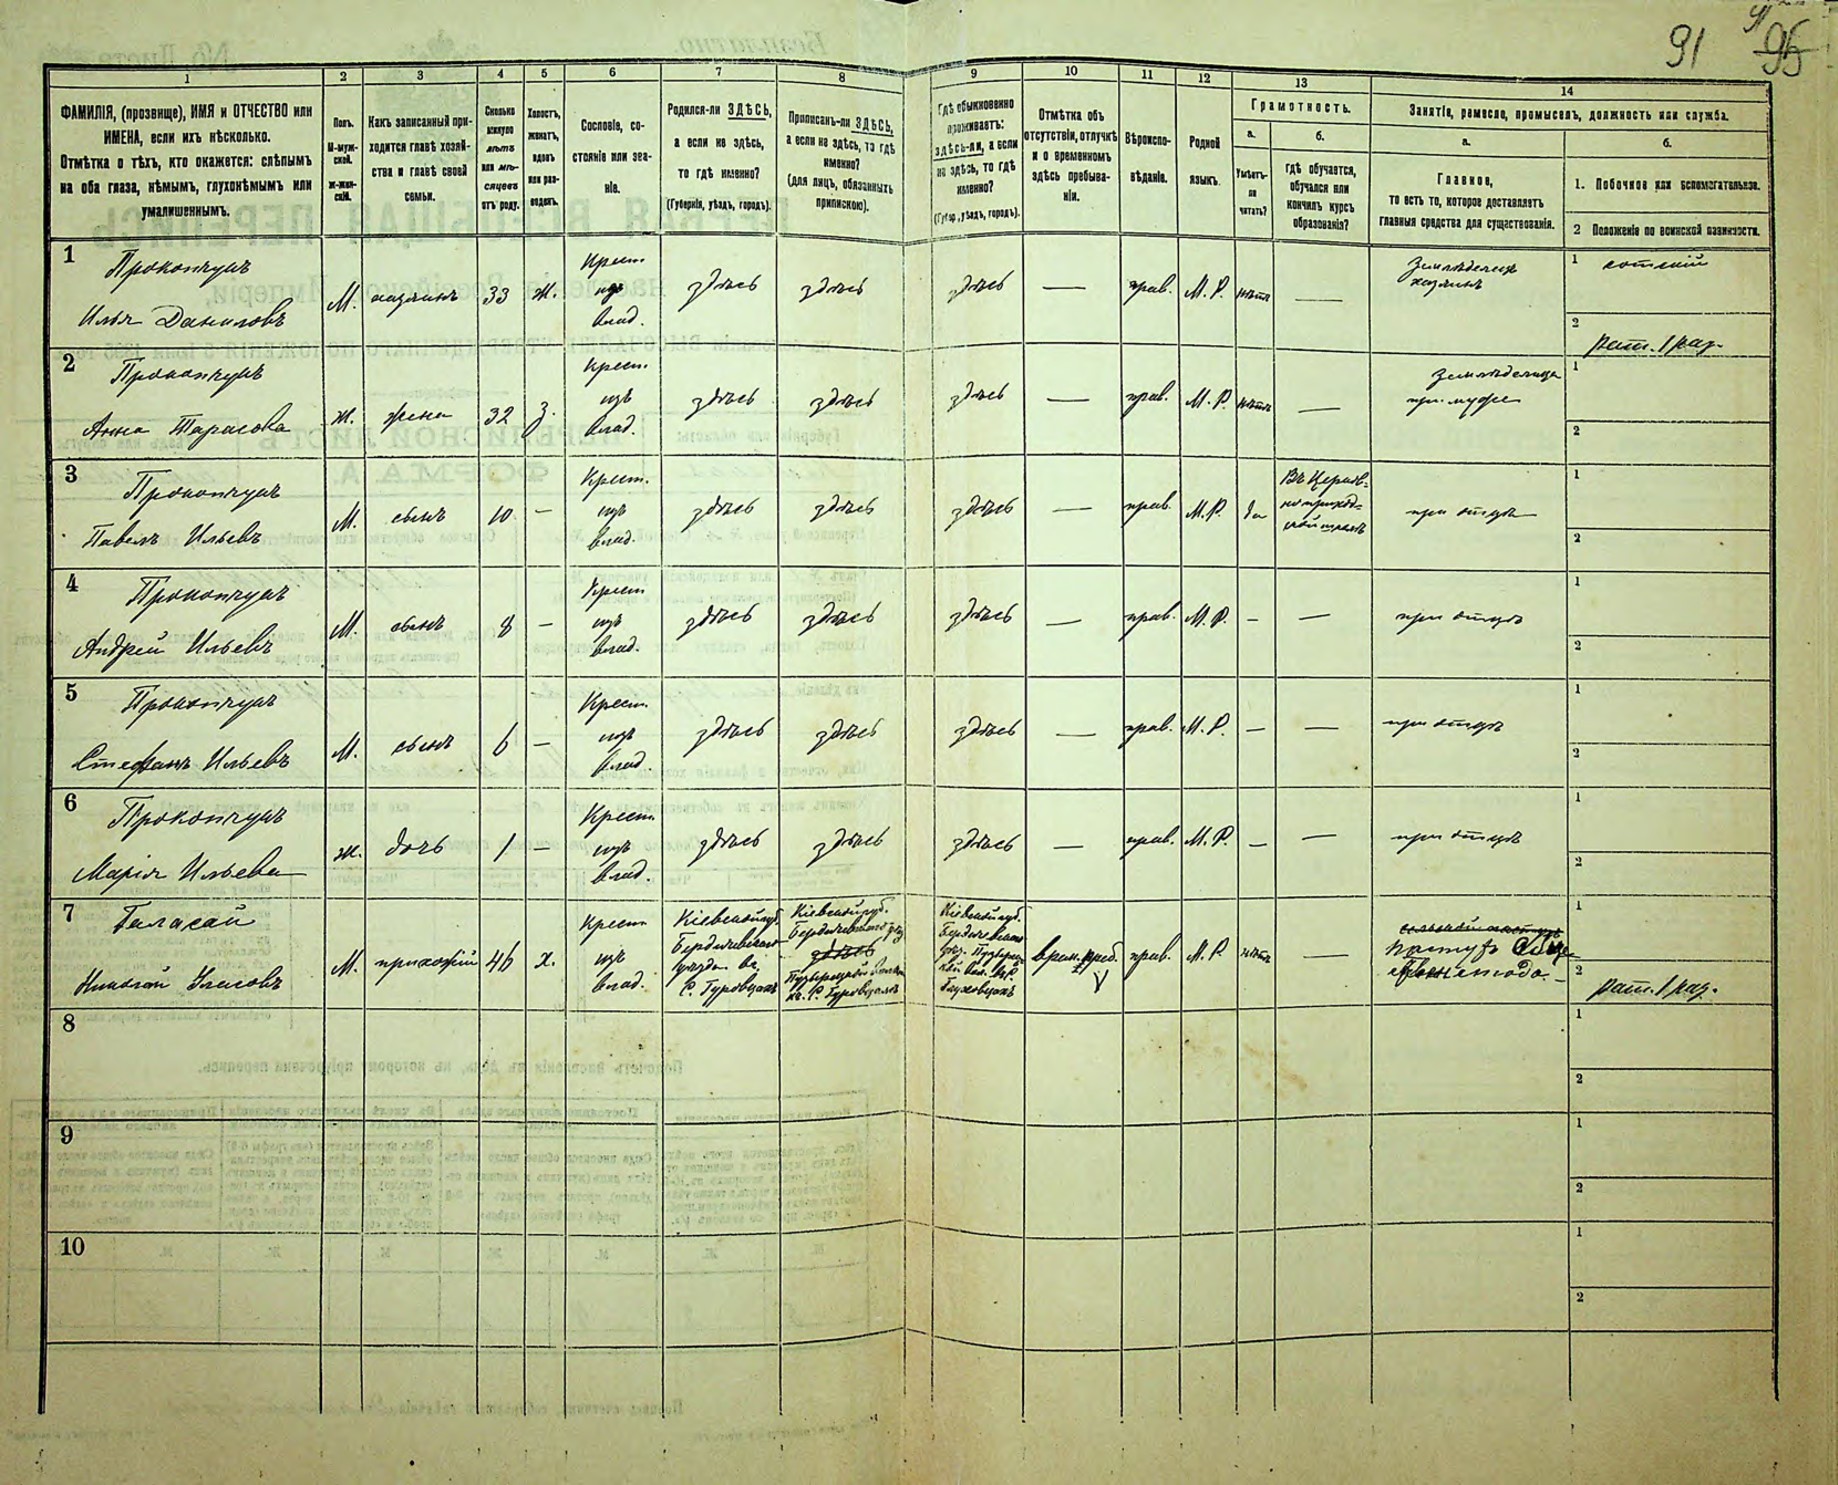 91 95
1 2 3 4 5 6 7 8 9 10 11 12 13 14
ФАМИЛІЯ, (прозвище), ИМЯ и ОТЧЕСТВО или
ИМЕНА, если ихъ нѣсколько.
Отмѣтка о тѣхъ, кто окажется: слѣпымъ
на оба глаза, нѣмымъ, глухонѣмымъ или
умалишеннымъ.
Полъ.
М-муж-
ской.
ж-жен-
скій.
Какъ записанный при-
ходится главѣ хозяй-
ства и главѣ своей
семьи.
Сколько
минуло
лѣтъ
или мѣ-
сяцевъ
отъ роду.
Холостъ,
женатъ,
вдовъ
или раз-
веденъ.
Сословіе, со-
стояніе или зва-
ніе.
Родился-ли ЗДѢСЬ,
а если не здѣсь,
то гдѣ именно?
(Губернія, уѣздъ, городъ).
Приписанъ-ли ЗДѢСЬ,
а если не здѣсь, то гдѣ
именно?
(для лицъ, обязанныхъ
припискою).
Гдѣ обыкновенно
проживаетъ:
здѣсь-ли, а если
не здѣсь, то гдѣ
именно?
(Губер., уѣздъ, городъ).
Отмѣтка объ
отсутствіи, отлучкѣ
и о временномъ
здѣсь пребыва-
ніи.
Вѣроиспо-
вѣданіе.
Родной
языкъ.
Грамотность.
а. б.
Умѣетъ-
ли
читать?
Гдѣ обучается,
обучался или
кончилъ курсъ
образованія?
Занятіе, ремесло, промыселъ, должность или служба.
а. б.
Главное,
то есть то, которое доставляетъ
главныя средства для существованія.
1. Побочное или вспомогательное.
2 Положеніе по воинской повинности.
1 Прокопчукъ
Илья Даниловъ
М. хозяинъ 33 ж.
Крест.
изъ
влад.
здѣсь здѣсь здѣсь — прав. М. Р. нѣтъ —
Земледѣлецъ
хозяинъ
1 сотскій
2 рат. 1 раз.
2 Прокопчукъ
Анна Тарасова
ж. жена 32 з.
Крест.
изъ
влад.
здѣсь здѣсь здѣсь — прав. М. Р. нѣтъ —
Земледѣлица
при мужѣ
1
2
3 Прокопчукъ
Павелъ Ильевъ
М. сынъ 10 —
Крест.
изъ
влад.
здѣсь здѣсь здѣсь — прав. М. Р. да
Въ Церков-
но приход-
ской школѣ
при отцѣ
1
2
4 Прокопчукъ
Андрей Ильевъ
М. сынъ 8 —
Крест.
изъ
влад.
здѣсь здѣсь здѣсь — прав. М. Р. — —
при отцѣ
1
2
5 Прокопчукъ
Стефанъ Ильевъ
М. сынъ 6 —
Крест.
изъ
влад.
здѣсь здѣсь здѣсь — прав. М. Р. — —
при отцѣ
1
2
6 Прокопчукъ
Марія Ильева
ж. дочь 1 —
Крест.
изъ
влад.
здѣсь здѣсь здѣсь — прав. М. Р. — —
при отцѣ
1
2
7 Галасай
Николай Власовъ
М. прихожій 46 х.
Крест.
изъ
влад.
Кіевской губ.
Бердичевскаго
уѣзда въ
с. Гуровцахъ
Кіевской губ.
Бердичевскаго уѣз.
здѣсь
Кіевской губ.
Бердичевскаго
врем. преб. прав. М. Р. нѣтъ —
пастухъ
1
2 рат. 1 раз.
8
1
2
9
1
2
10
1
2